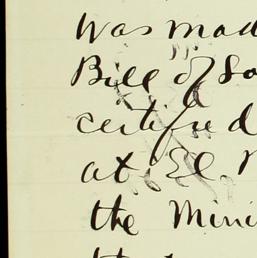 was mad
Bill of Sa
certified
at El
the Mini